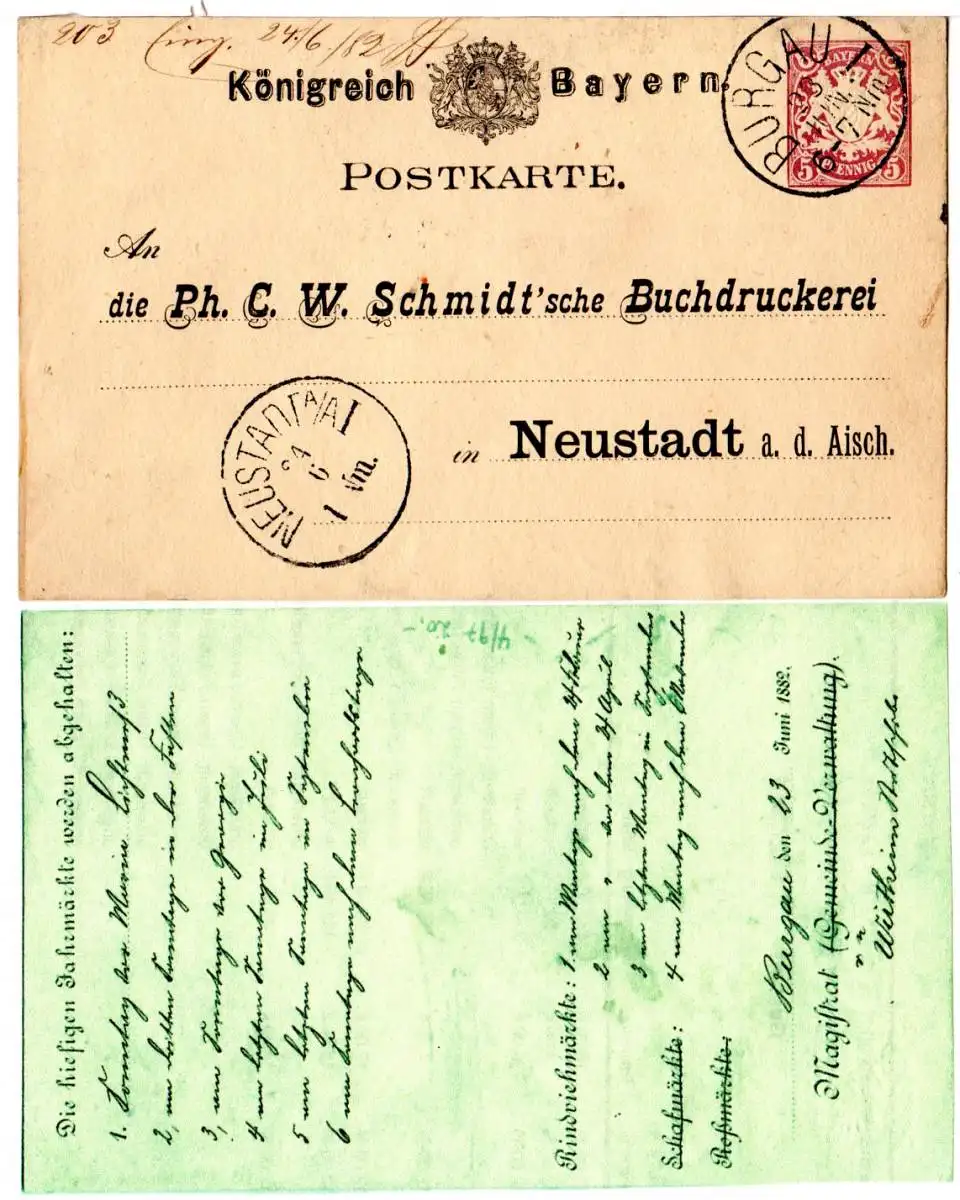 203 Eing. 24./6./82
Königreich Bayern.
POSTKARTE.
BURGAU I
23 JUN.
5 PFENNIG 5
BAYERN
An
die Ph. C. W. Schmidt'sche Buchdruckerei
in Neustadt a. d. Aisch.
NEUSTADT A/A I
24
6
1 Vm.
4/97 20,-
Die hiesigen Jahrmärkte werden abgehalten:
1. Sonntag vor Maria Lichtmeß
2, am dritten Sonntage in der Fasten
3, am Sonntage vor Georgi
4 am letzten Sonntage im Juli
5 am letzten Sonntage im September
6 am Sonntage nach dem
Rindviehmärkte: 1 am Montage nach dem
2 am " " dem April
3 am letzten Montag im September
Schafmärkte: 4 am Montag nach dem
Roßmärkte:
Burgau den 23 Juni 1882.
Magistrat (Gemeinde-Verwaltung).